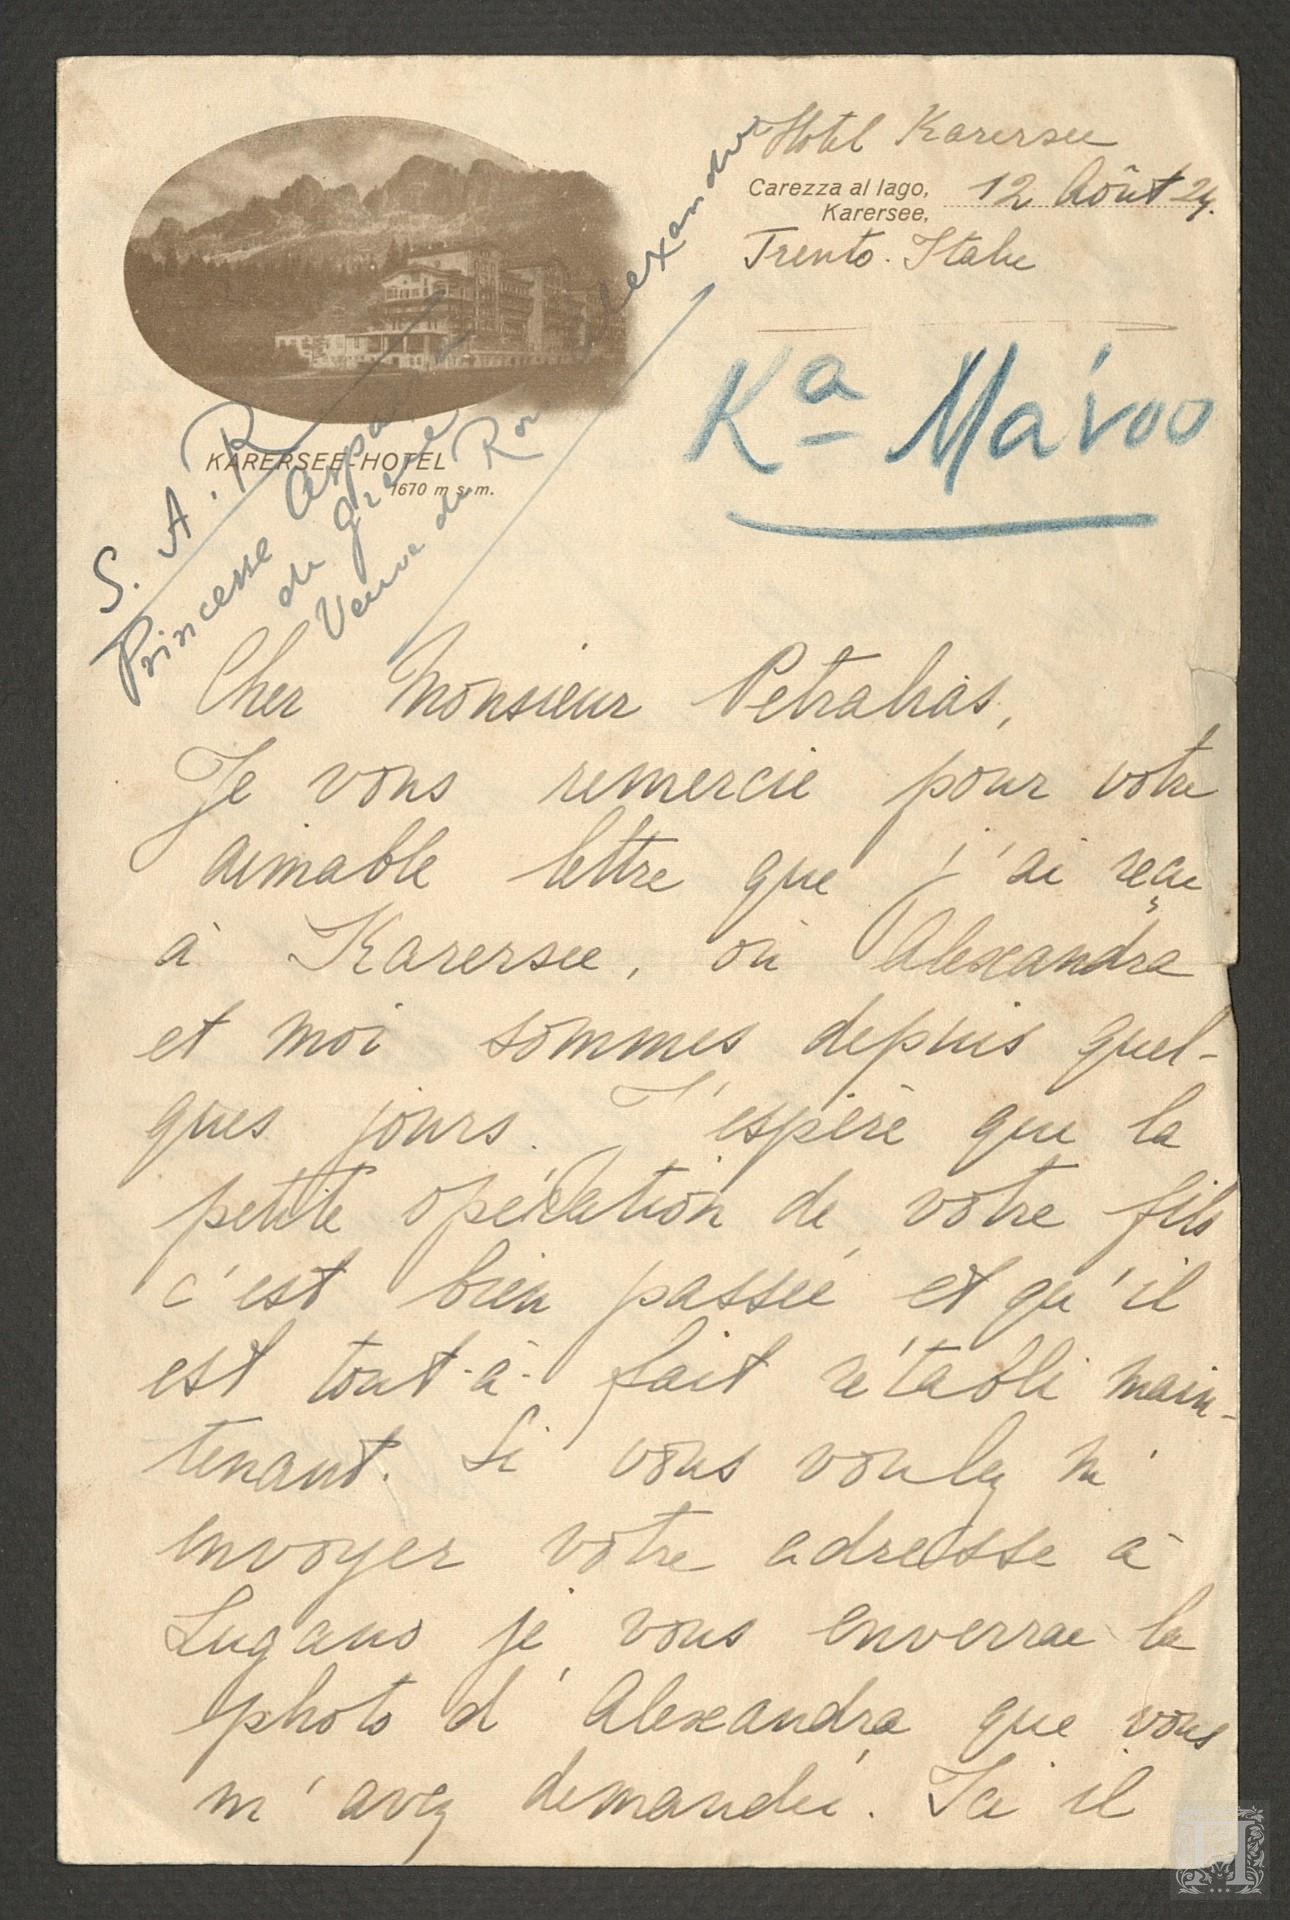 Hotel Karersee
Carezza al lago,
Karersee, 12 Août 24.
Trento. Italie
Kα Μάνου
KARERSEE-HOTEL
1670 m s. m.
S. A. R.
Princesse Aspasia
de Grèce
Veuve du Roi Alexandre
Cher Monsieur Petrahas,
Je vous remercie pour votre
aimable lettre que j'ai reçue
à Karersee, où Alexandra
et moi sommes depuis quel-
ques jours. J'espère que la
petite opération de votre fils
c'est bien passée et qu'il
est tout-à-fait rétabli main-
tenant. Si vous voulez m'
envoyer votre adresse à
Lugano je vous enverrae la
photo d'Alexandra que vous
m'avez demandée. Ici il